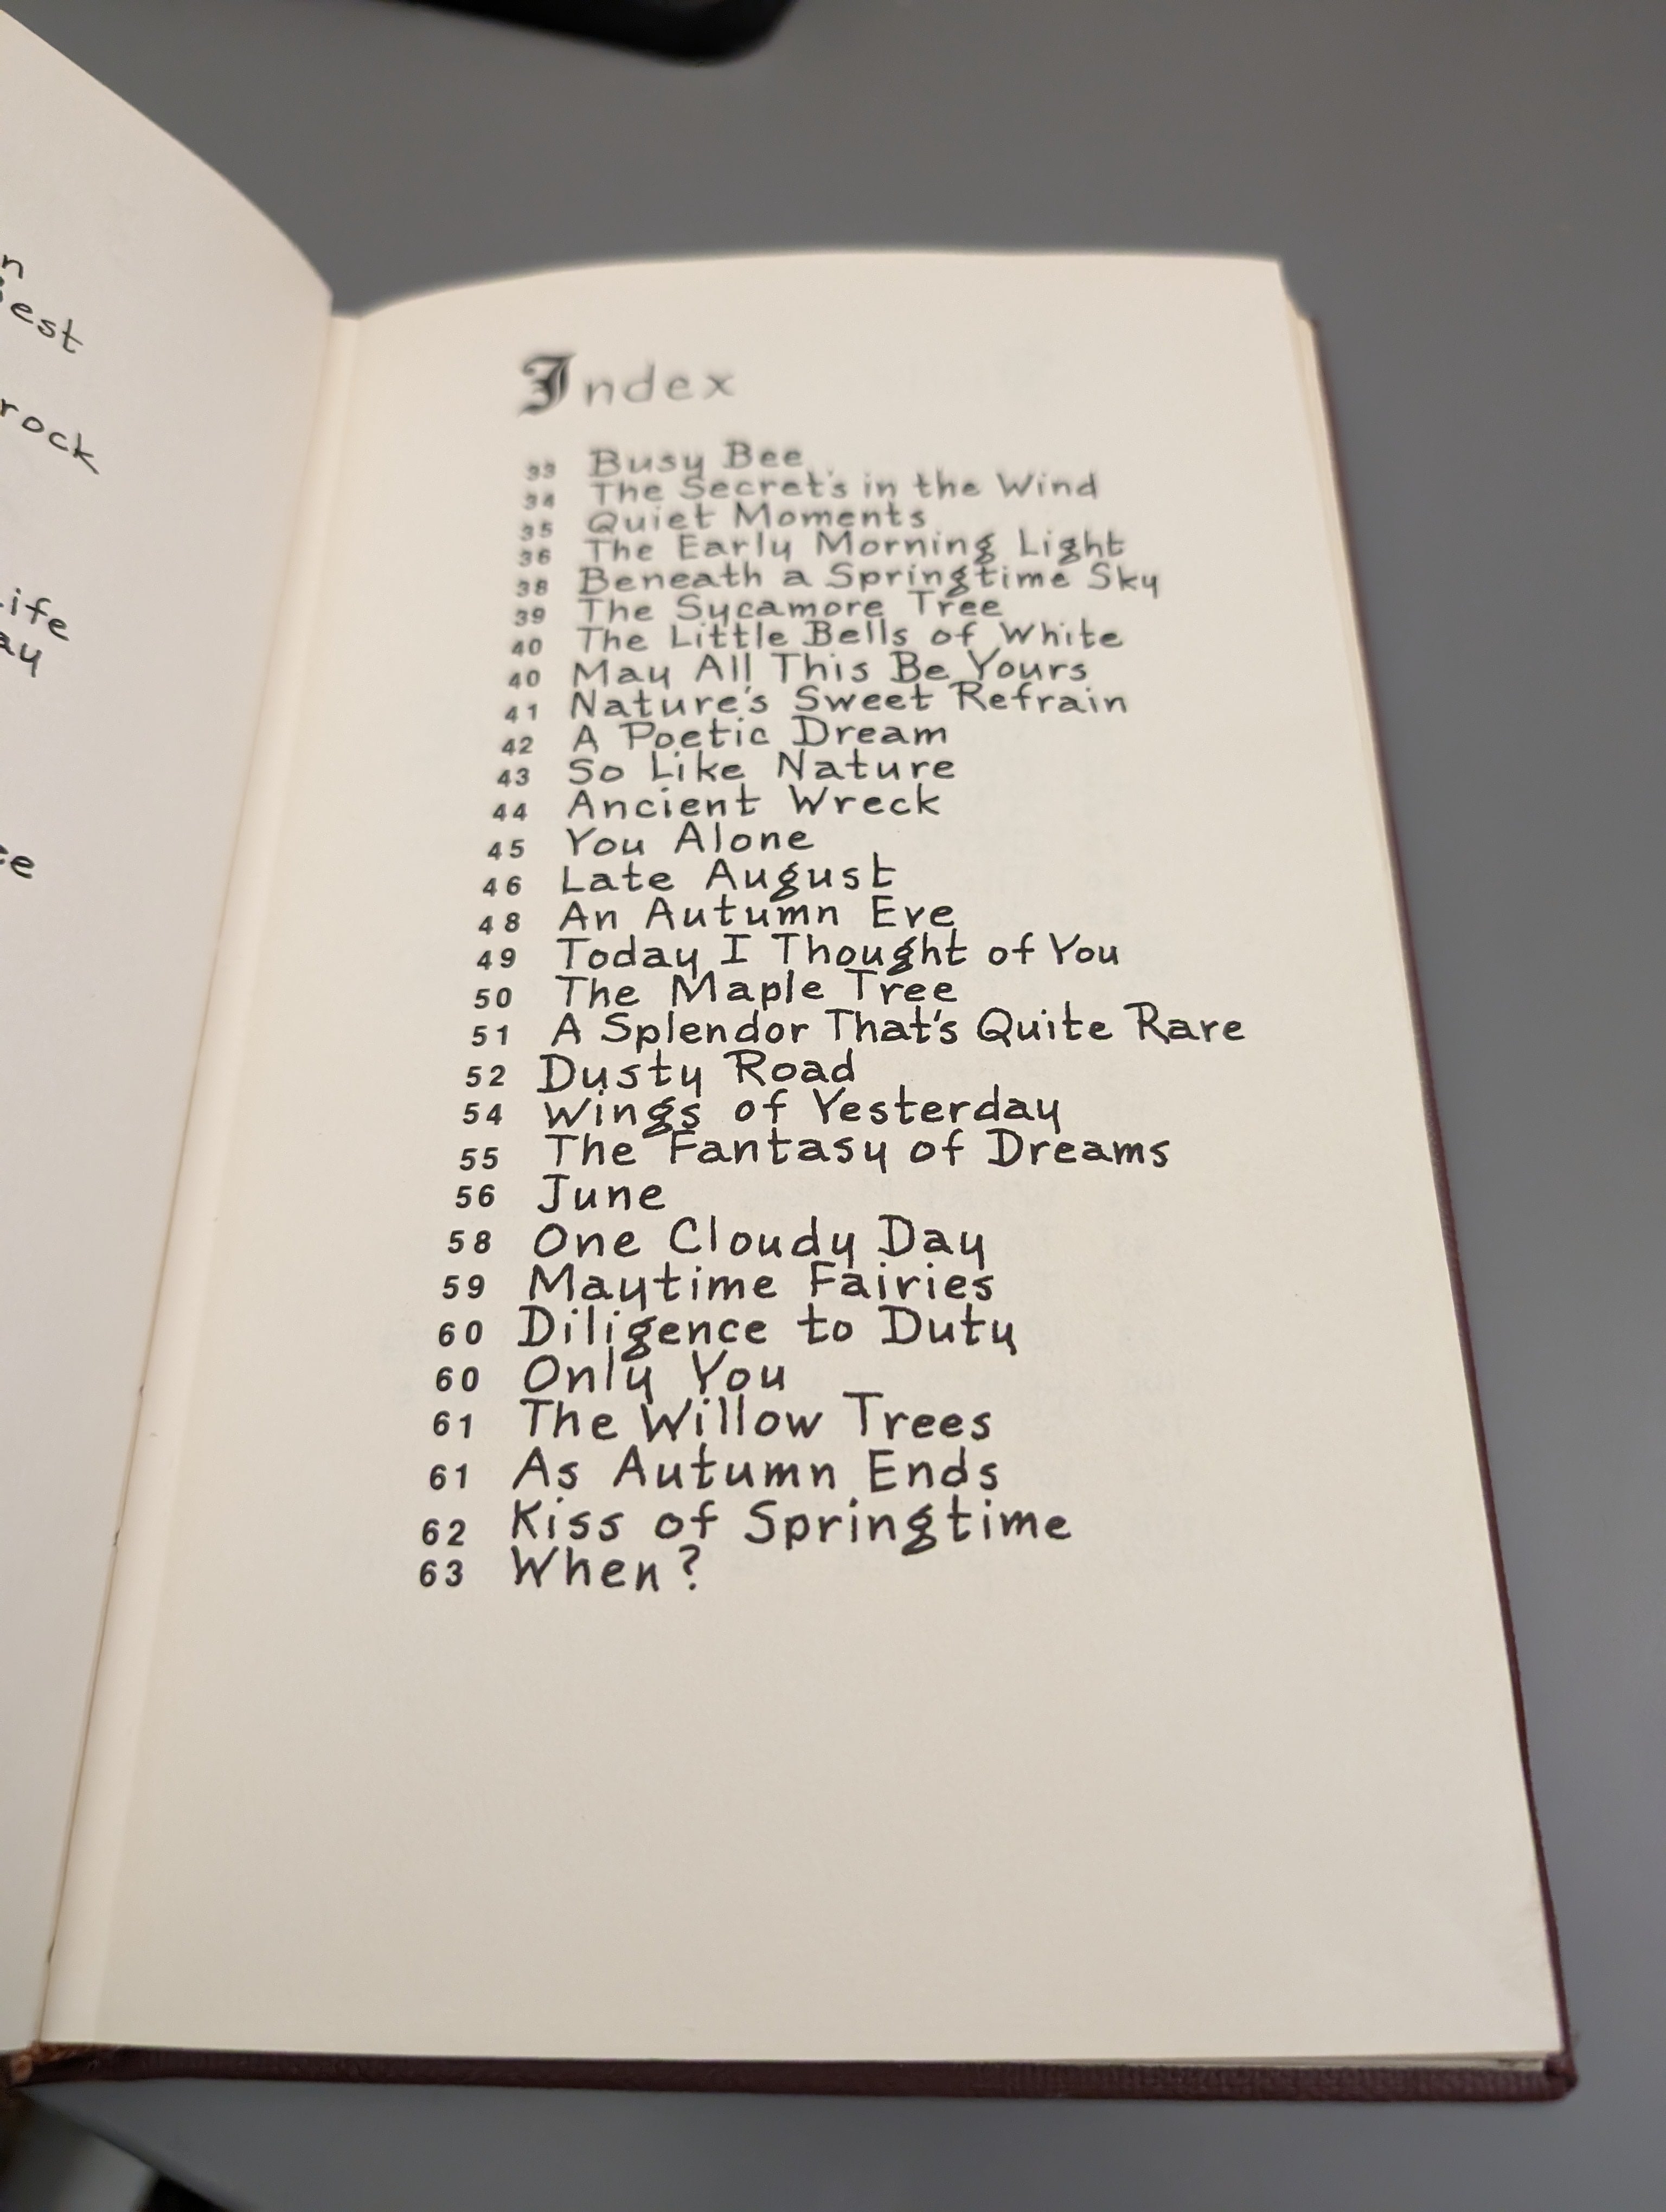 n
est
rock
ife
ay
ce
Index
33 Busy Bee
34 The Secret's in the Wind
35 Quiet Moments
36 The Early Morning Light
38 Beneath a Springtime Sky
39 The Sycamore Tree
40 The Little Bells of White
40 May All This Be Yours
41 Nature's Sweet Refrain
42 A Poetic Dream
43 So Like Nature
44 Ancient Wreck
45 You Alone
46 Late August
48 An Autumn Eve
49 Today I Thought of You
50 The Maple Tree
51 A Splendor That's Quite Rare
52 Dusty Road
54 Wings of Yesterday
55 The Fantasy of Dreams
56 June
58 One Cloudy Day
59 Maytime Fairies
60 Diligence to Duty
60 Only You
61 The Willow Trees
61 As Autumn Ends
62 Kiss of Springtime
63 When?